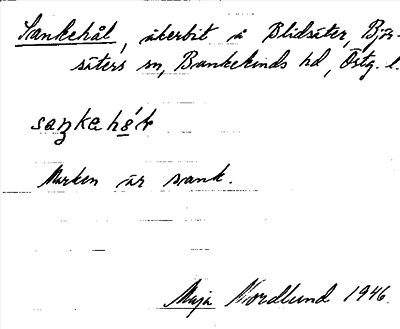 Sankehål, åkerbit å Blidsäter, Bjär-
säters sn, Bankekinds hd, Östg. l.
Marken är sank.
Maja Nordlund 1946.